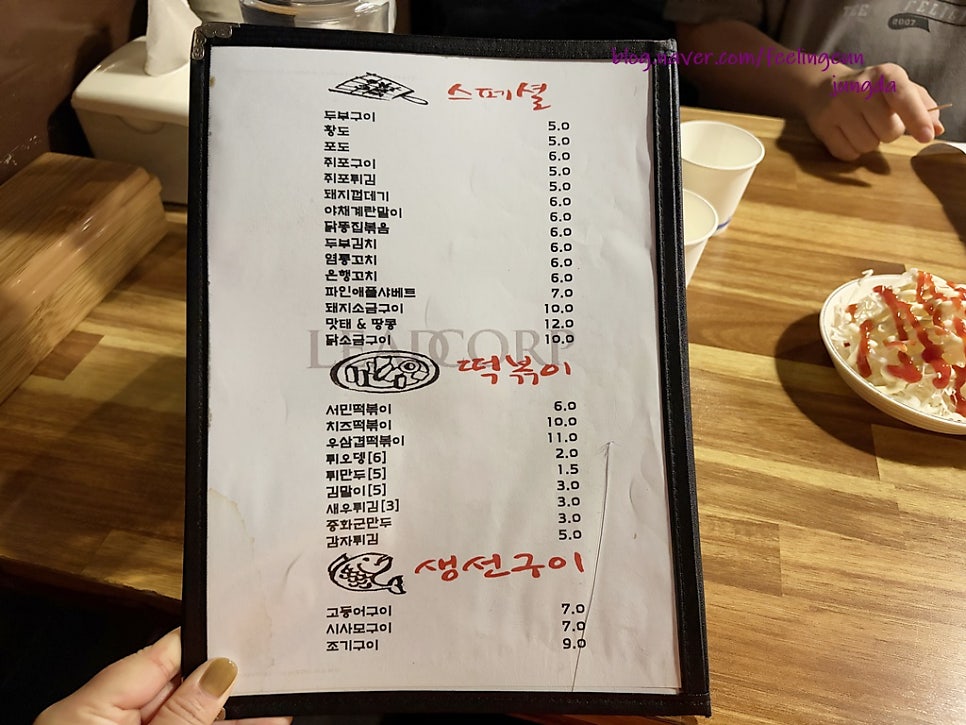 blog.naver.com/feelingeun
jungda
2007
스페셜
두부구이 5.0
황도 5.0
포도 6.0
쥐포구이 5.0
쥐포튀김 5.0
돼지껍데기 6.0
야채계란말이 6.0
닭똥집볶음 6.0
두부김치 6.0
염통꼬치 6.0
은행꼬치 6.0
파인애플샤베트 7.0
돼지소금구이 10.0
맛태 & 땅콩 12.0
닭소금구이 10.0
LEADCORP
떡볶이
서민떡볶이 6.0
치즈떡볶이 10.0
우삼겹떡볶이 11.0
튀오뎅[6] 2.0
튀만두[5] 1.5
김말이[5] 3.0
새우튀김[3] 3.0
중화군만두 3.0
감자튀김 5.0
생선구이
고등어구이 7.0
시사모구이 7.0
조기구이 9.0